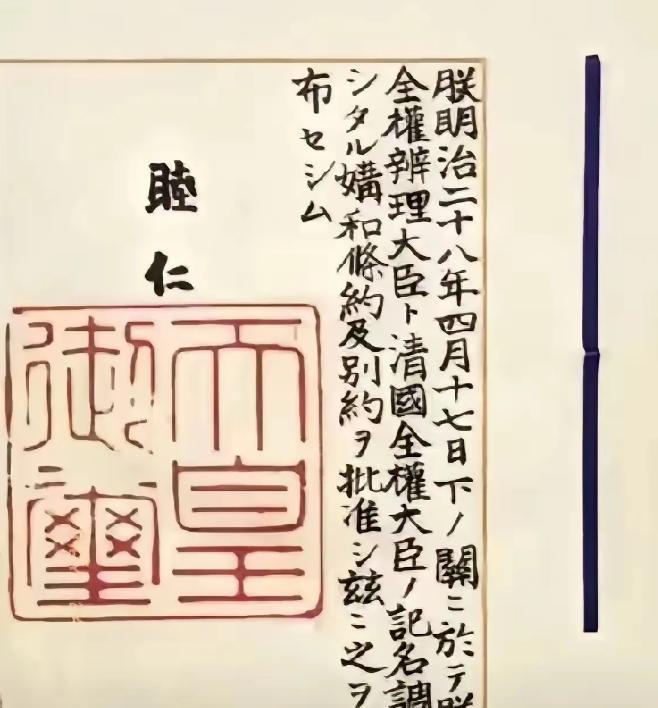 朕明治二十八年四月十七日下ノ關ニ於テ朕
全權辨理大臣ト清國全權大臣ノ記名調
シタル媾和條約及別約ヲ批准シ茲ニ之ヲ
布セシム
睦仁
天皇
御璽